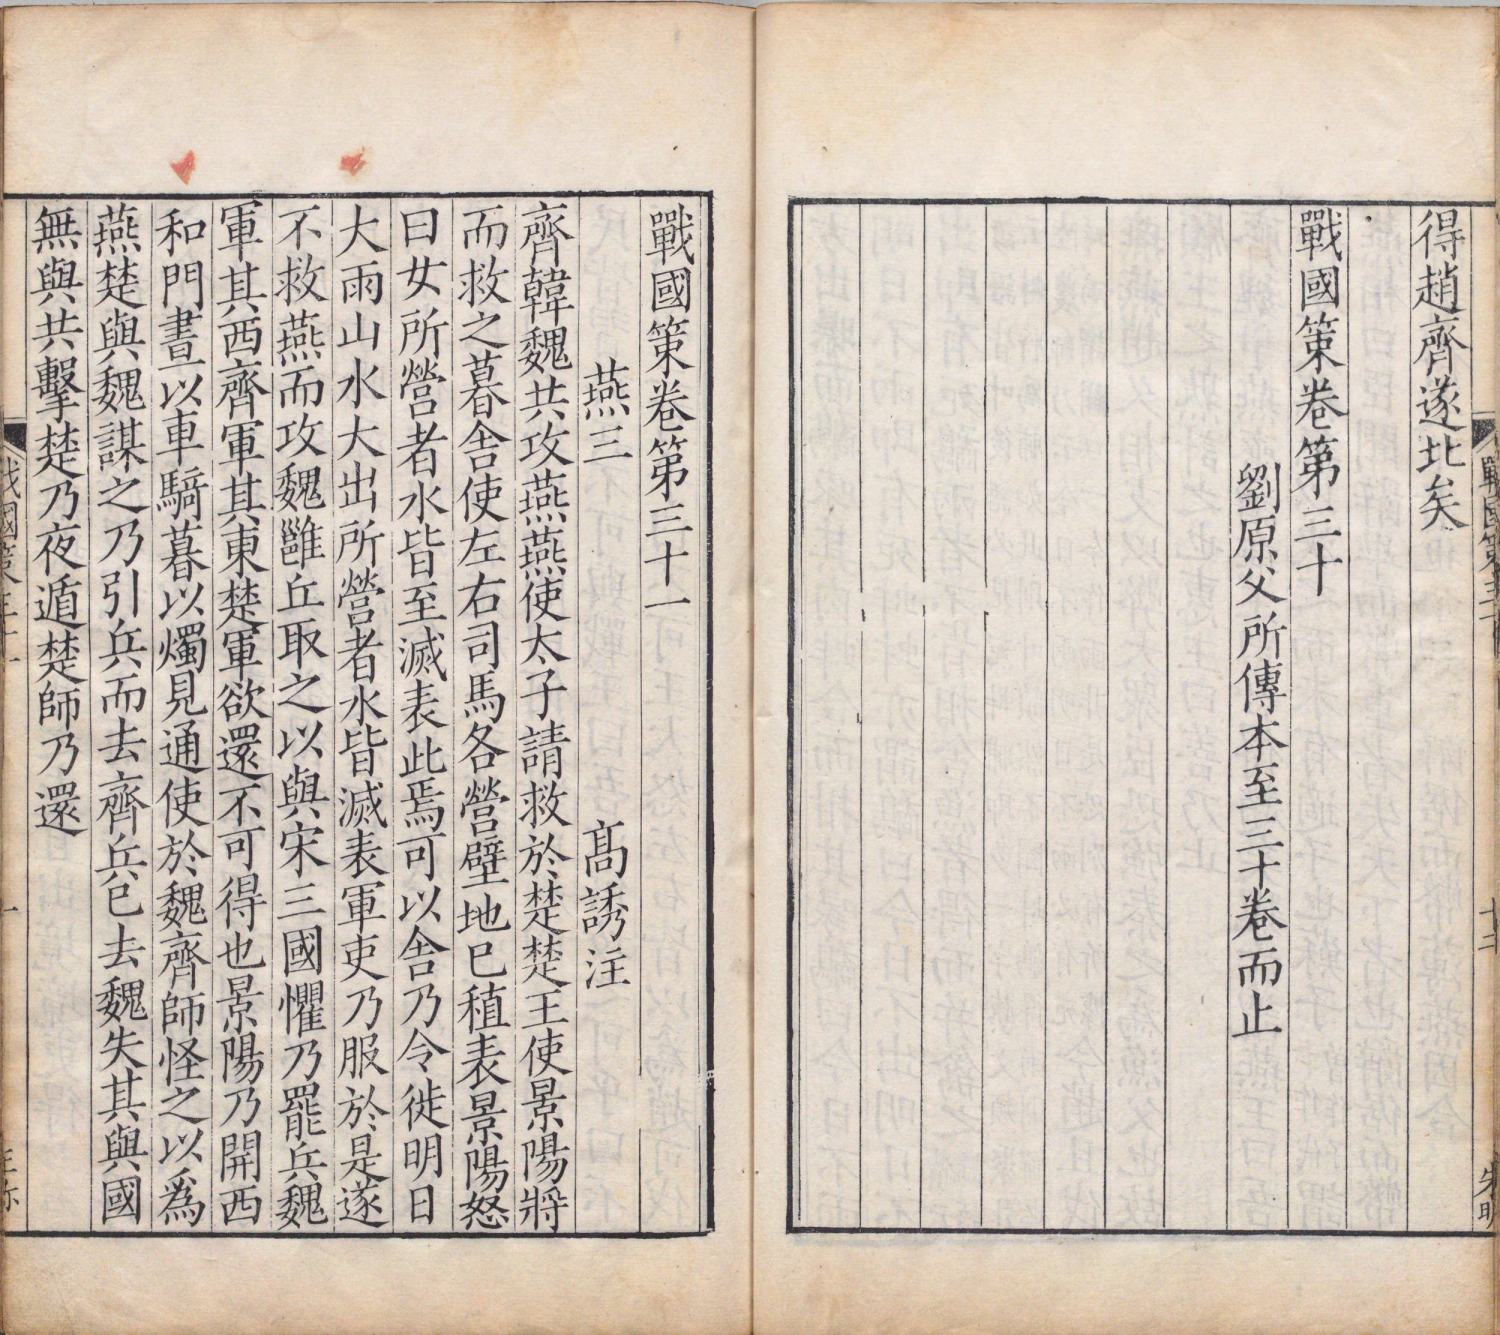 得趙齊遂北矣
戰國策卷第三十
劉原父所傳本至三十卷而止
戰國策卷第三十一
燕三 高誘注
齊韓魏共攻燕燕使太子請救於楚楚王使景陽將
而救之暮舍使左右司馬各營壁地已稙表景陽怒
曰女所營者水皆至滅表此焉可以舍乃令徙明日
大雨山水大出所營者水皆滅表軍吏乃服於是遂
不救燕而攻魏雝丘取之以與宋三國懼乃罷兵魏
軍其西齊軍其東楚軍欲還不可得也景陽乃開西
和門晝以車騎暮以燭見通使於魏齊師怪之以爲
燕楚與魏謀之乃引兵而去齊兵已去魏失其與國
無與共擊楚乃夜遁楚師乃還